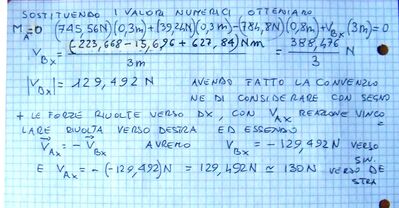 SOSTITUENDO I VALORI NUMERICI OTTENIAMO
M_A=0 (745,56N)(0,3m)+(39,24N)(0,3m)-(784,8N)(0,8m)+V_Bx(3m)=0
V_Bx = (-223,668-15,696+627,84)Nm / 3m = 388,476 / 3 N
|V_Bx| = 129,492N AVENDO FATTO LA CONVENZIO
NE DI CONSIDERARE CON SEGNO
+ LE FORZE RIVOLTE VERSO DX, CON V_Ax REAZIONE VINCO
LARE RIVOLTA VERSO DESTRA ED ESSENDO
V_Ax = -V_Bx AVREMO V_Bx = -129,492N VERSO SIN.
E V_Ax = -(-129,492)N = 129,492N ≃ 130N VERSO DE
STRA